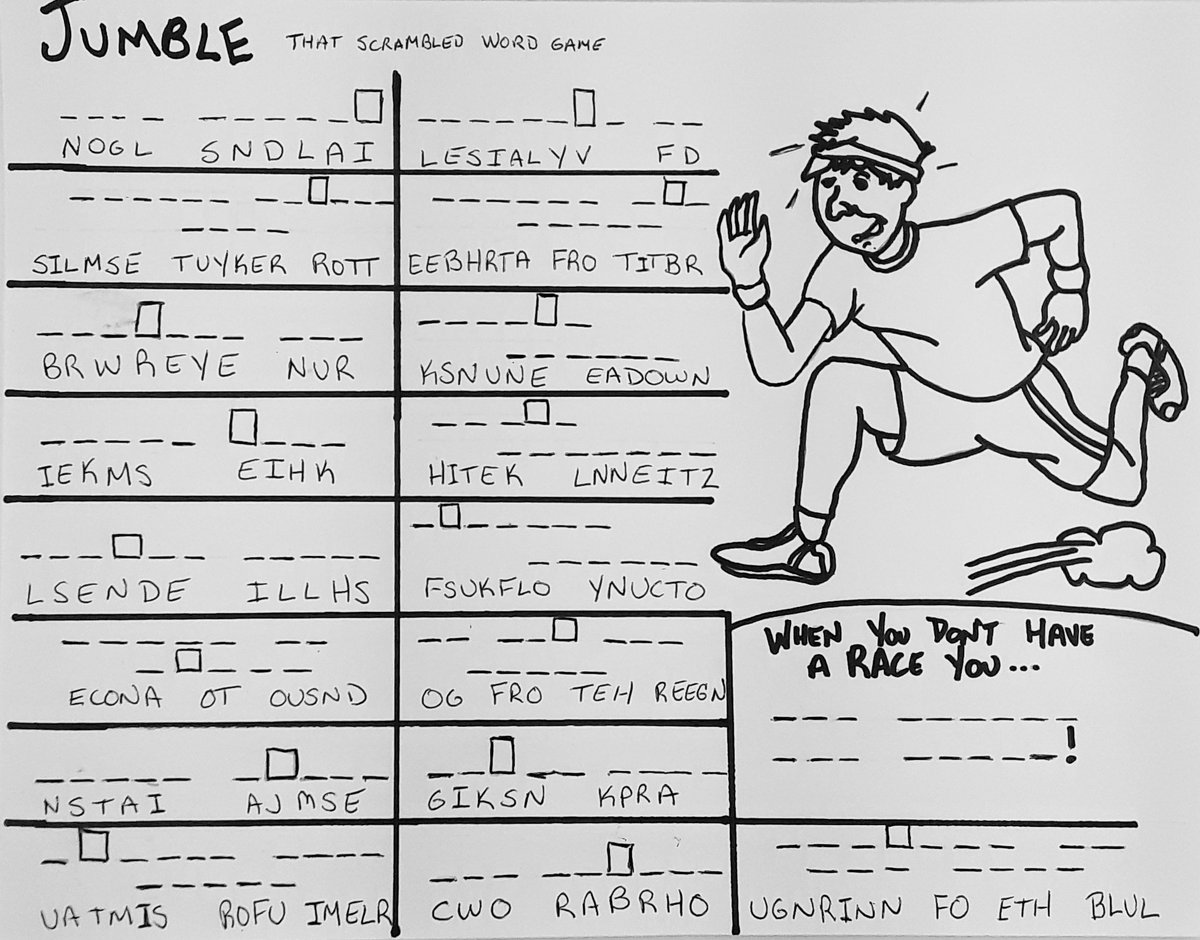 JUMBLE THAT SCRAMBLED WORD GAME
NOGL SNDLAI
LESIALYV FD
SILMSE TUYKER ROTT
EEBHRTA FRO TITBR
BRWREYE NUR
KSNUNE EADOWN
IEKMS EIHK
HITEK LNNEITZ
LSENDE ILLHS
FSUKFLO YNUCTO
ECONA OT OUSND
OG FRO TEH REEGN
NSTAI AJMSE
GIKSN KPRA
UATMIS ROFU IMELR
CWO RABRHO
WHEN YOU DON'T HAVE
A RACE YOU...
!
UGNRINN FO ETH BLUL